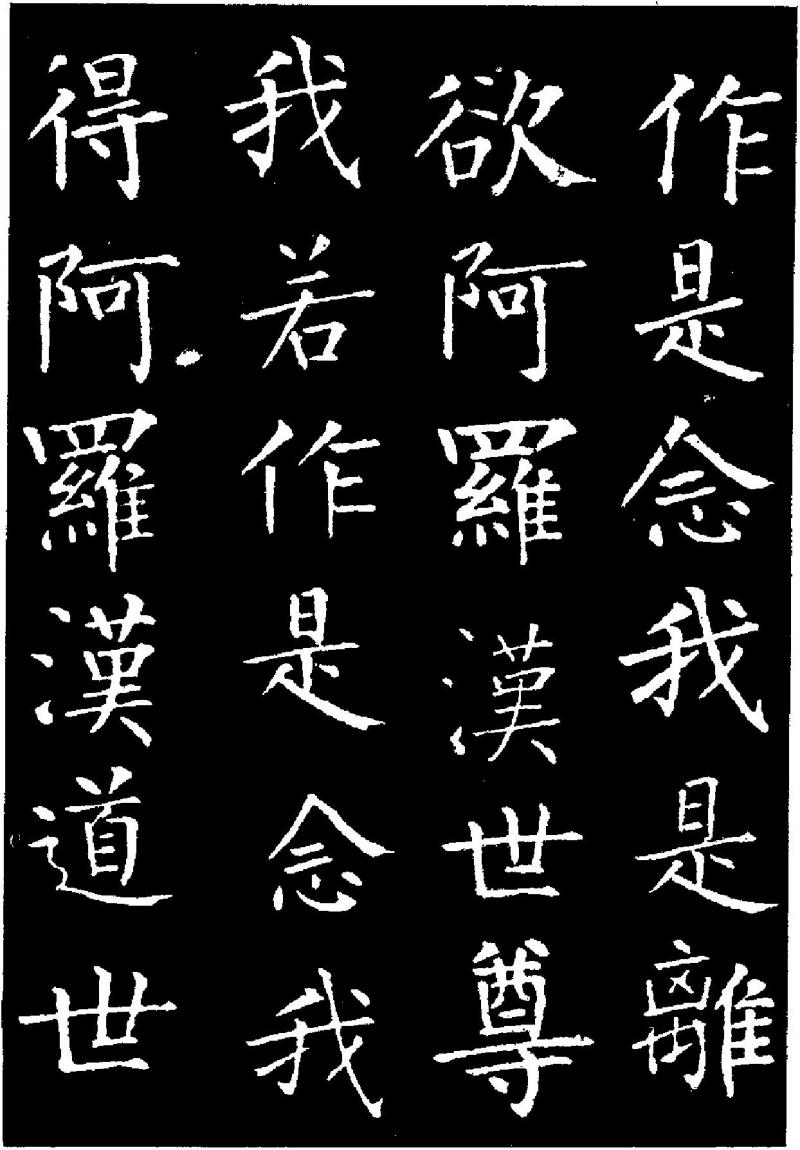 作是念我是離
欲阿羅漢世尊
我若作是念我
得阿羅漢道世